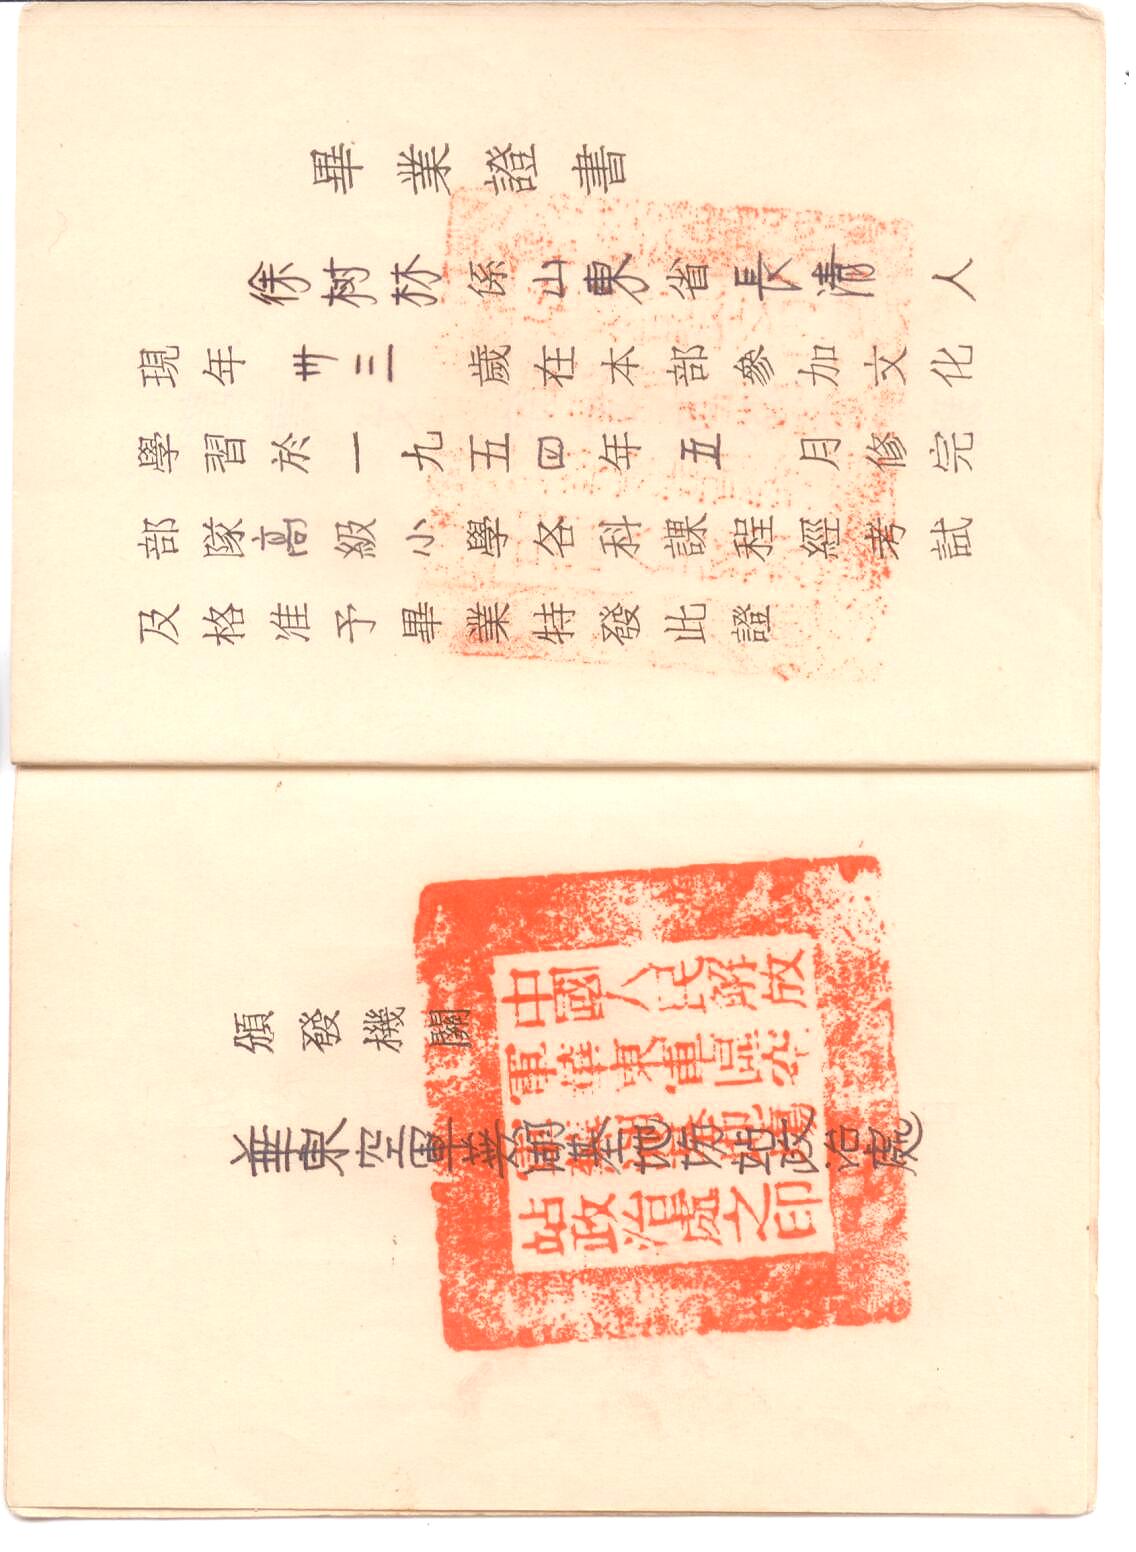 畢業證書
徐樹林係山東省長清人
現年卅三歲在本部參加文化
學習於一九五四年五月修完
部隊高級小學各科課程經考試
及格准予畢業特發此證
頒發機關
華東空軍基地场站政治處
中國人民解放
軍華東軍區空
站政治處之印